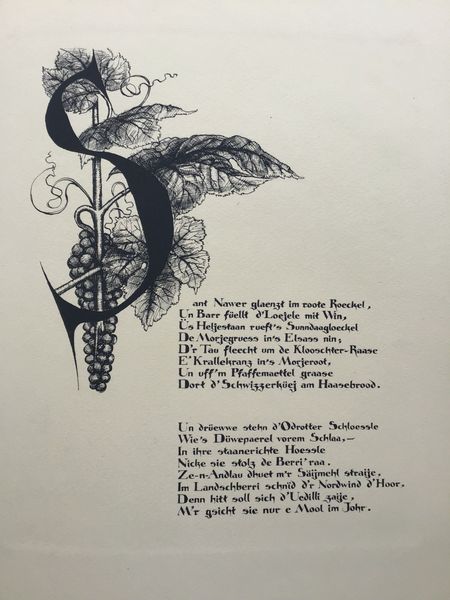 Sant Nawer glaenzt im roote Roeckel,
Un Barr füellt d'Loejele mit Win,
Üs Heljestaan rueft's Sunndaagloeckel
De Morjegruess in's Elsass nin;
D'r Tau fleecht um de Klooschter-Raase
E'Krallekranz in's Morjeroot,
Un uff'm Pfaffemaettel graase
Dort d'Schwizzerküej am Haasebrood.
Un drüewwe stehn d'Odrotter Schloessle
Wie's Döwepaerel vorem Schlaa,—
In ihre staanerichte Hoessle
Nicke sie stolz de Berri'raa.
Ze-n-Andlau dhuet m'r Säijmehl straije,
Im Landschberri schnid d'r Nordwind d'Hoor.
Denn hitt soll sich d'Uedilli zaije,
M'r gsicht sie nur e Mool im Johr.